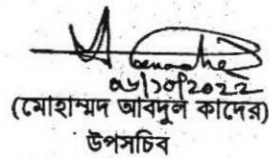 ০৬/১০/২০২২
(মোহাম্মদ আবদুল কাদের)
উপসচিব